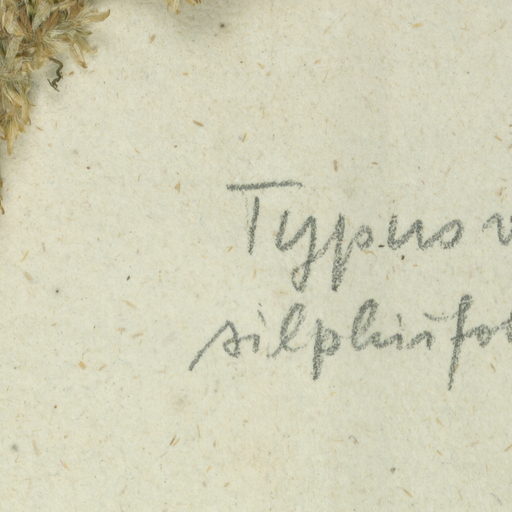 Typus v
silphiifol